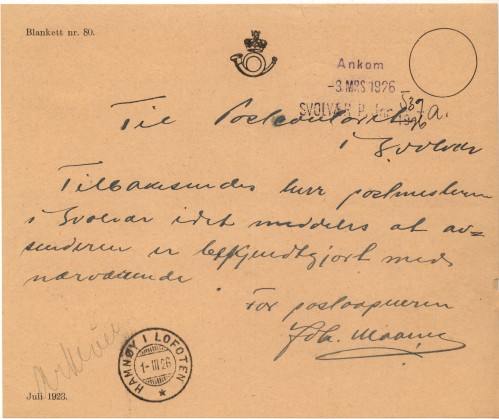 Blankett nr. 80.
Ankom
-3 MRS 1926
SVOLVÆR P. Jnr. 539/1926 a.
Til Postkontoret
i Svolvær
Tilbakesendes herr postmesteren
i Svolvær idet meddeles at av-
senderen er bekjendtgjort med
nærværende
For postaapneren
Joh.
HAMNØY I LOFOTEN
1-III 26
Juli 1923.